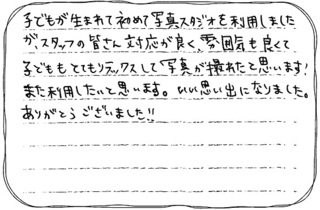 子どもが生まれて初めて写真スタジオを利用しました
が、スタッフの皆さん対応が良く、雰囲気も良くて
子どももとてもリラックスして写真が撮れたと思います!
また利用したいと思います。いい思い出になりました。
ありがとうございました!!